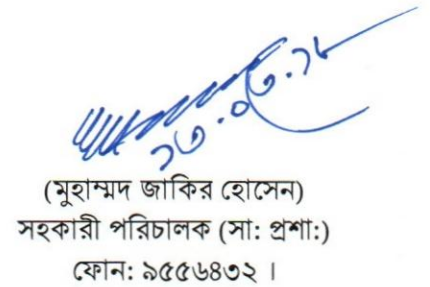 ১৩.০৩.১৮
(মুহাম্মদ জাকির হোসেন)
সহকারী পরিচালক (সা: প্রশা:)
ফোন: ৯৫৫৬৪৩২ ।